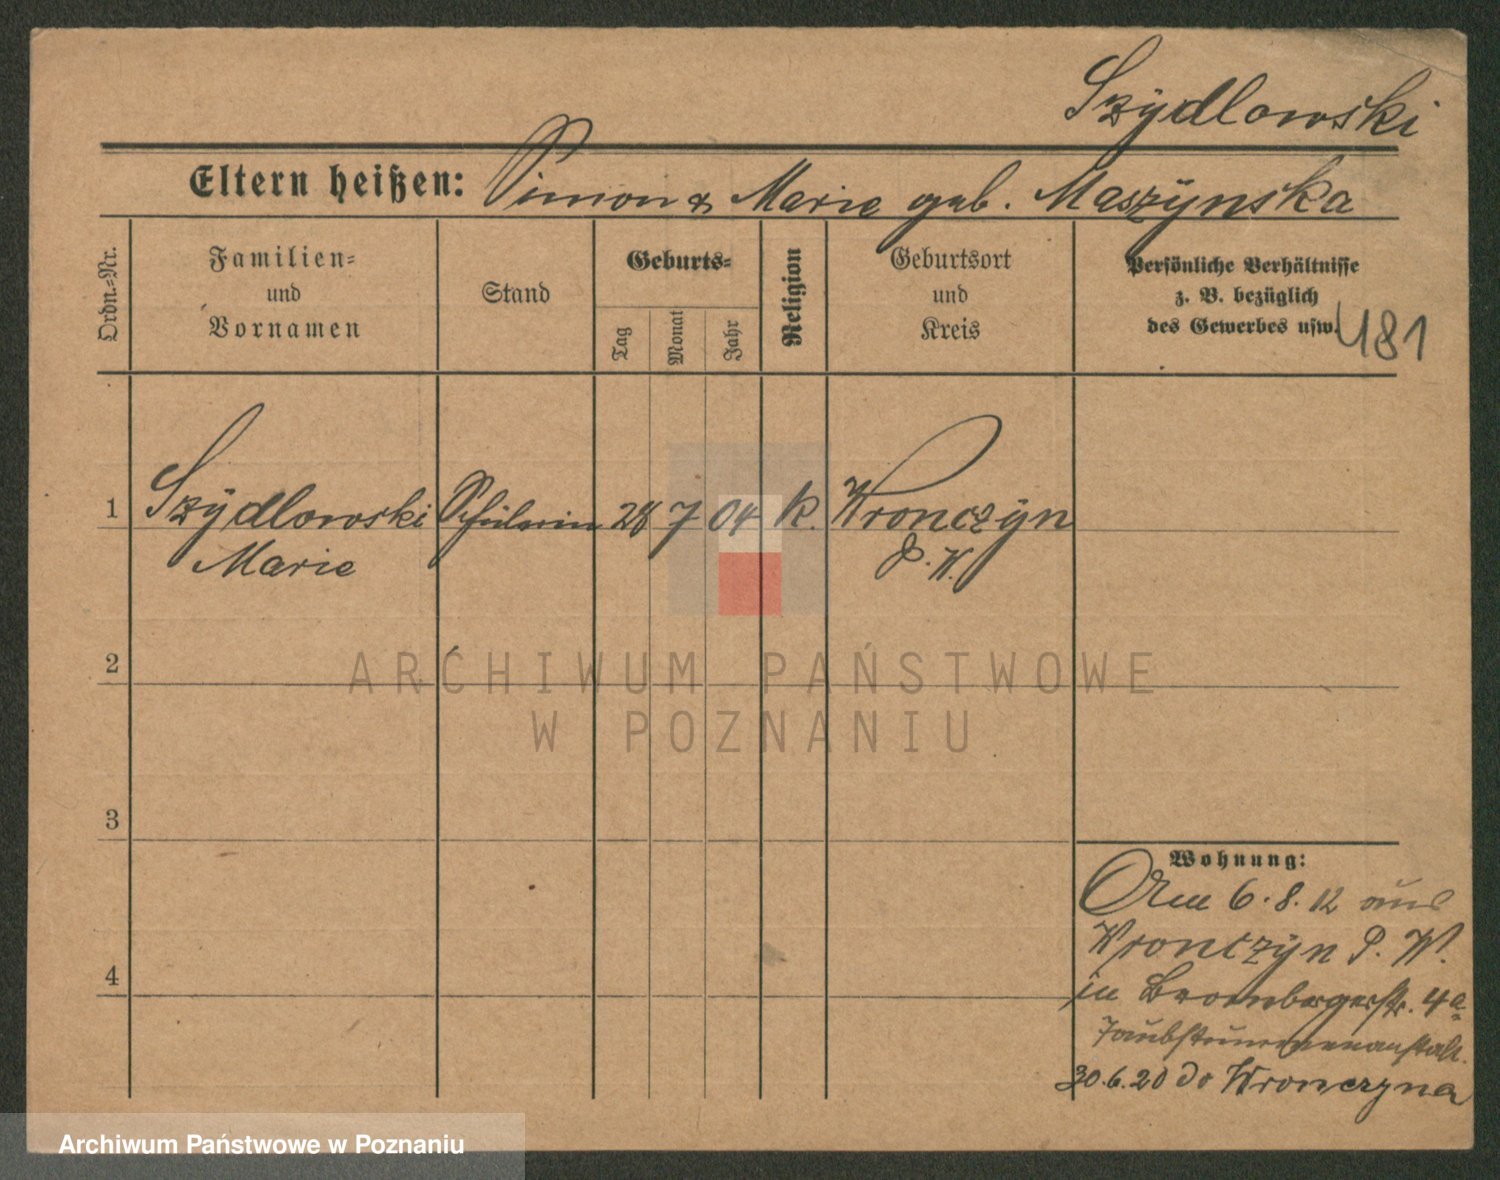 Szÿdlowski
Eltern heißen: Simon & Marie geb. Maszÿnska
Ordn.-Nr.
Familien-
und
Vornamen
Stand
Geburts-
Tag
Monat
Jahr
Religion
Geburtsort
und
Kreis
Persönliche Verhältnisse
z. B. bezüglich
des Gewerbes usw.
481
1 Szÿdlowski Schülerin 28 7 04 k. Wronczÿn
Marie P. W.
2
3
4
Wohnung:
Am 6.8.12 aus
Wronczÿn P. W.
in Brombergerstr. 4a
Taubstummenanstalt.
30.6.20 do Wronczyna
ARCHIWUM PAŃSTWOWE
W POZNANIU
Archiwum Państwowe w Poznaniu